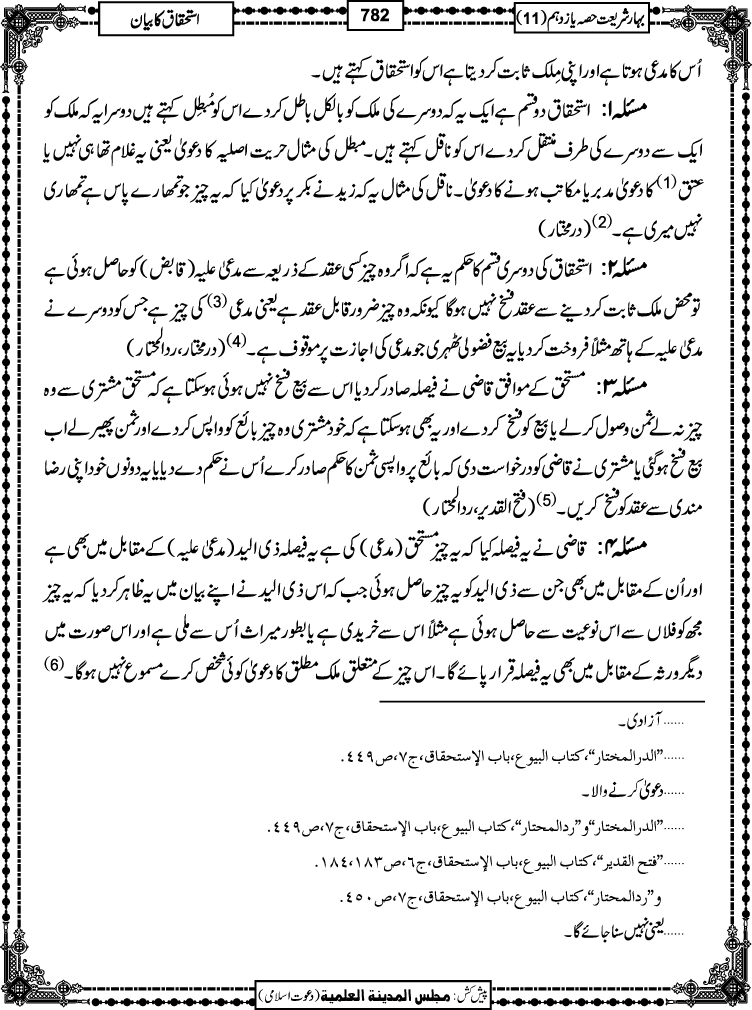 بہار شریعت حصہ یازدہم (11)
782
استحقاق کا بیان
اُس کا مدعی ہوتا ہے اور اپنی مِلک ثابت کر دیتا ہے اس کو استحقاق کہتے ہیں۔
مسئلہ ۱: استحقاق دو قسم ہے ایک یہ کہ دوسرے کی ملک کو بالکل باطل کردے اس کو مُبطِل کہتے ہیں دوسرا یہ کہ ملک کو
ایک سے دوسرے کی طرف منتقل کردے اس کو ناقل کہتے ہیں۔ مبطل کی مثال حریت اصلیہ کا دعویٰ یعنی یہ غلام تھا ہی نہیں یا
عتق (1) کا دعویٰ مدبر یا مکاتب ہونے کا دعویٰ۔ ناقل کی مثال یہ کہ زید نے بکر پر دعویٰ کیا کہ یہ چیز جو تمھارے پاس ہے تمھاری
نہیں میری ہے۔ (2) (درمختار)
مسئلہ ۲: استحقاق کی دوسری قسم کا حکم یہ ہے کہ اگر وہ چیز کسی عقد کے ذریعہ سے مدعیٰ علیہ (قابض) کو حاصل ہوئی ہے
تو محض ملک ثابت کردینے سے عقد فسخ نہیں ہوگا کیونکہ وہ چیز ضرور قابل عقد ہے یعنی مدعی (3) کی چیز ہے جس کو دوسرے نے
مدعیٰ علیہ کے ہاتھ مثلاً فروخت کردیا یہ بیع فضولی ٹھہری جو مدعی کی اجازت پر موقوف ہے۔ (4) (درمختار، ردالمحتار)
مسئلہ ۳: مستحق کے موافق قاضی نے فیصلہ صادر کردیا اس سے بیع فسخ نہیں ہوئی ہوسکتا ہے کہ مستحق مشتری سے وہ
چیز نہ لے ثمن وصول کرلے یا بیع کو فسخ کردے اور یہ بھی ہوسکتا ہے کہ خود مشتری وہ چیز بائع کو واپس کردے اور ثمن پھیر لے اب
بیع فسخ ہوگئی یا مشتری نے قاضی کو درخواست دی کہ بائع پر واپسی ثمن کا حکم صادر کرے اُس نے حکم دے دیا یا یہ دونوں خود اپنی رضا
مندی سے عقد کو فسخ کریں۔ (5) (فتح القدیر، ردالمحتار)
مسئلہ ۴: قاضی نے یہ فیصلہ کیا کہ یہ چیز مستحق (مدعی) کی ہے یہ فیصلہ ذی الید (مدعیٰ علیہ) کے مقابل میں بھی ہے
اور اُن کے مقابل میں بھی جن سے ذی الید کو یہ چیز حاصل ہوئی جب کہ اس ذی الید نے اپنے بیان میں یہ ظاہر کردیا کہ یہ چیز
مجھ کو فلاں سے اس نوعیت سے حاصل ہوئی ہے مثلاً اس سے خریدی ہے یا بطور میراث اُس سے ملی ہے اور اس صورت میں
دیگر ورثہ کے مقابل میں بھی یہ فیصلہ قرار پائے گا۔ اس چیز کے متعلق ملک مطلق کا دعویٰ کوئی شخص کرے مسموع نہیں ہوگا۔ (6)
......آزادی۔
......”الدرالمختار“، کتاب البیوع، باب الإستحقاق، ج٧، ص٤٤٩.
......دعویٰ کرنے والا۔
......”الدرالمختار“ و”ردالمحتار“، کتاب البیوع، باب الإستحقاق، ج٧، ص٤٤٩.
......”فتح القدیر“، کتاب البیوع، باب الإستحقاق، ج٦، ص١٨٣، ١٨٤.
و”ردالمحتار“، کتاب البیوع، باب الإستحقاق، ج٧، ص٤٥٠.
......یعنی نہیں سنا جائے گا۔
پیش کش: مجلس المدینۃ العلمیۃ (دعوت اسلامی)